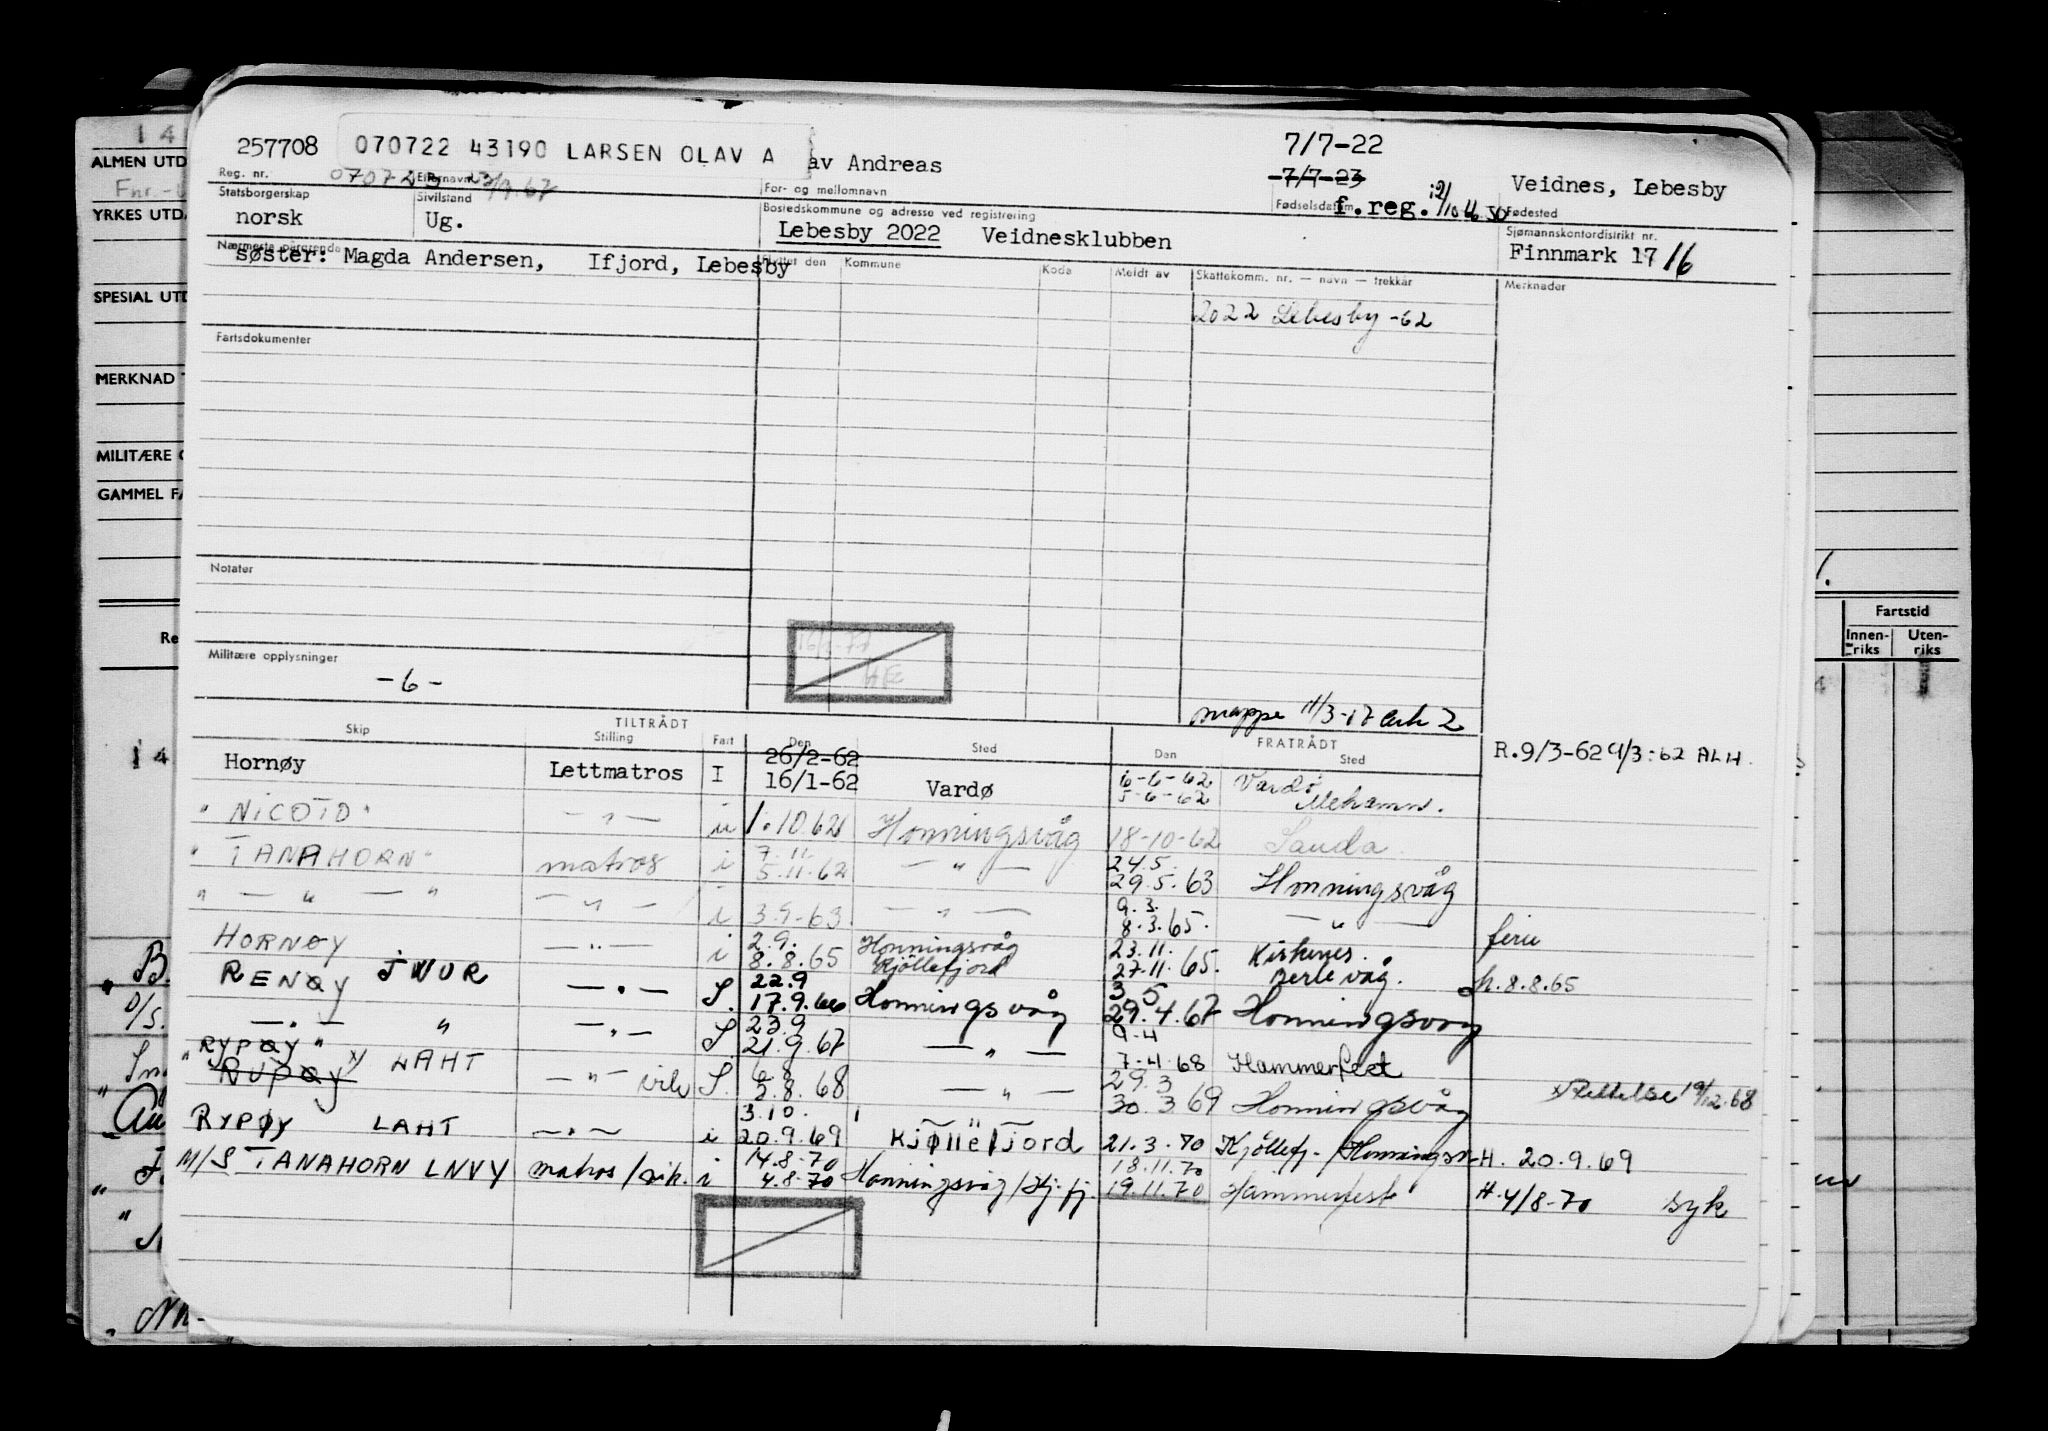 257708 070722 43190 LARSEN OLAV A av Andreas 7/7-22
Reg. nr. Etternavn For- og mellomnavn 7/7-23 Fødselsdato f.reg. Veidnes, Lebesby Fødested
Statsborgerskap Sivilstand Bostedskommune og adresse ved registrering Sjømannskontordistrikt nr.
norsk Ug. Lebesby 2022 Veidnesklubben Finnmark 17 16
Nærmeste pårørende
søster: Magda Andersen, Ifjord, Lebesby
Flyttet den Kommune Kode Meldt av Skattekomm. nr. — navn — trekkår Merknader
2022 Lebesby -62
Fartsdokumenter
Notater
Militære opplysninger
- 6 -
mappe 11/3-17
TILTRÅDT FRATRÅDT
Skip Stilling Fart Den Sted Den Sted
R.9/3-62 9/3-62 ALH.
Hornøy Lettmatros I 26/2-62 16/1-62 Vardø 6-6-62 5-6-62 Vardø Mehamn.
" NICOTO " — " — u 1.10.62 Honningsvåg 18-10-62 Sauda
" TANAHORN " matros i 7.11. 5.11.62 — " — 24.5. 29.5.63 Honningsvåg
" — " — " — " — i 3.9-63 — " — 9.3. 8.3.65. — " — ferie
HORNØY — " — i 2.9. 8.8.65 Honningsvåg Kjöllefjord 23.11. 27.11.65. Kirkenes. Berlevåg. h.8.8.65
RENØY JWUR — " — S. 22.9 17.9.66 Honningsvåg 3.5 29.4.67 Honningsvåg
— " — " — " — S 23.9 21.9.67 — " — 9-4 7-4-68 Hammerfest
" RYPØY " RUPØY x) LAHT — " — S. 6.8 2.8.68 — " — 29.3 30.3 69 Honningsvåg x Rettelse 19/12.68
RYPØY LAHT — " — i 3.10. 20.9.69 Kjøllefjord 21.3.70 Kjöllefj. / Honningsv. H. 20.9.69
M/S TANAHORN LNVY matros/vik. i 14.8.70 4.8.70 Honningsvåg/Kj.fj. 18.11.70 19.11.70 Hammerfest H.4/8-70 syk
ALMEN UTD
YRKES UTDA
SPESIAL UTD
MERKNAD T
MILITÆRE O
GAMMEL FA
Fartstid
Innen-riks Uten-riks